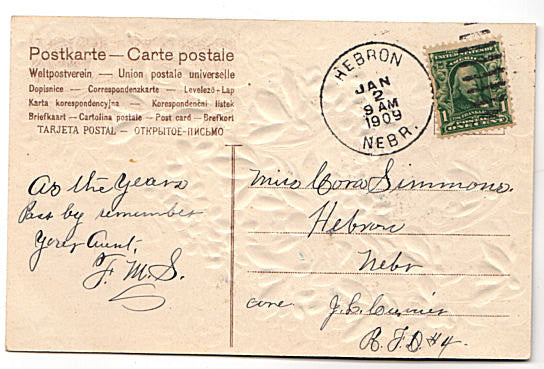 Postkarte — Carte postale
Weltpostverein — Union postale universelle
Dopisnice — Correspondenzkarte — Levelező-Lap
Karta korespondencyjna — Korespondenční lístek
Briefkaart — Cartolina postale — Post card — Brefkort
TARJETA POSTAL — ОТКРЫТОЕ-ПИСЬМО
HEBRON
JAN
2
9 AM
1909
NEBR.
1
As the Years
Pass by remember
Your Aunt,
F. M. S.
Miss Cora Simmons.
Hebron
Nebr
care J. B.
R. F. D #4.